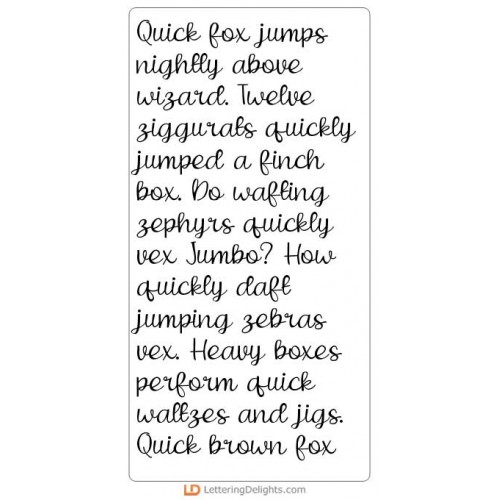 Quick fox jumps
nightly above
wizard. Twelve
ziggurats quickly
jumped a finch
box. Do wafting
zephyrs quickly
vex Jumbo? How
quickly daft
jumping zebras
vex. Heavy boxes
perform quick
waltzes and jigs.
Quick brown fox
LD LetteringDelights.com